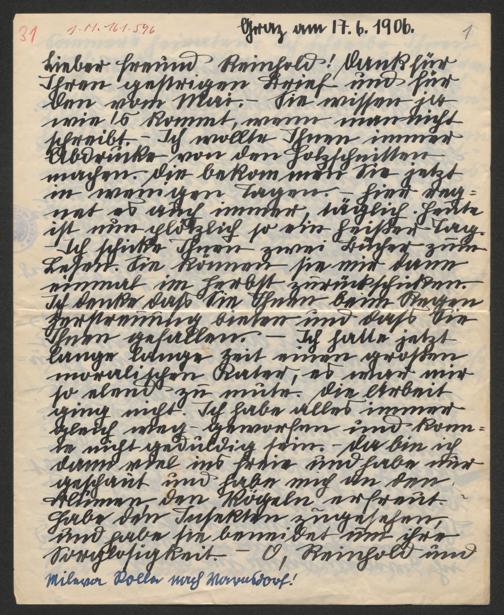 31
1.11.161.596
Graz am 17.6.1906.
1
Lieber Freund Reinhold! Dank für
Ihren gestrigen Brief und für
den vom Mai. – Sie wissen ja
wie es kommt, wenn man nicht
schreibt. – Ich wollte Ihnen immer
Abdrücke von den Holzschnitten
machen. Die bekommen Sie jetzt
in wenigen Tagen. – Hier reg=
net es auch immer, täglich. Heute
ist nun plötzlich so ein heißer Tag.
Ich schicke Ihnen zwei Bücher zum
Lesen. Sie können sie mir dann
einmal im Herbst zurückschicken.
Ich denke daß sie Ihnen beim Regen
Zerstreuung bieten und daß sie
Ihnen gefallen. – Ich hatte jetzt
lange lange Zeit einen großen
moralischen Kater, es war mir
so elend zu mute. Die Arbeit
ging nicht. Ich habe alles immer
gleich weg geworfen und konn=
te nicht geduldig sein. – Da bin ich
dann viel ins Freie und habe nur
geschaut und habe mich an den
Blumen den Vögeln erfreut
habe den Insekten zugesehen,
und habe sie beneidet um ihre
Sorglosigkeit. – O, Reinhold und
Mileva Roller nach Warnsdorf!